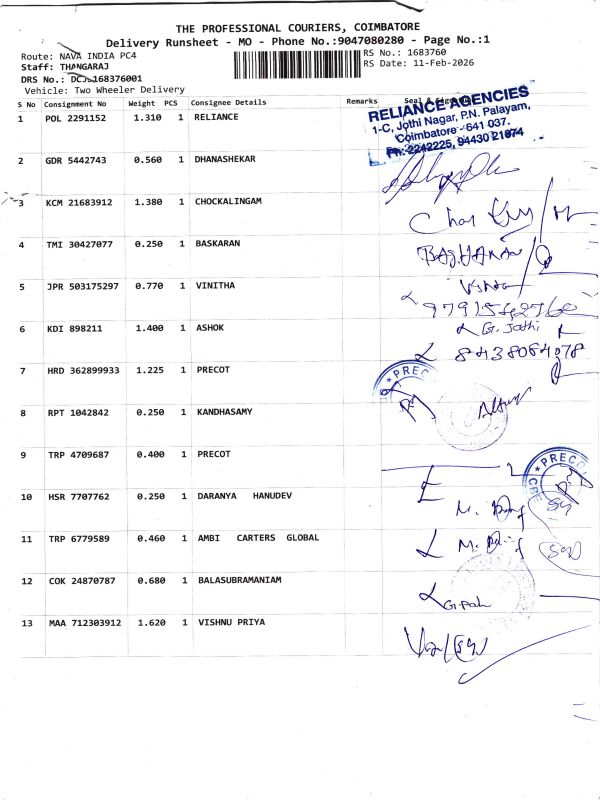 THE PROFESSIONAL COURIERS, COIMBATORE
Delivery Runsheet - MO - Phone No.:9047080280 - Page No.:1
Route: NAVA INDIA PC4
RS No.: 1683760
Staff: THANGARAJ
RS Date: 11-Feb-2026
DRS No.: 168376001
Vehicle: Two Wheeler Delivery
S No Consignment No Weight PCS Consignee Details Remarks Seal &
RELIANCE AGENCIES
1-C, Jothi Nagar, P.N. Palayam,
Coimbatore - 641 037.
Ph: 2242225, 94430 21874
1 POL 2291152 1.310 1 RELIANCE
2 GDR 5442743 0.560 1 DHANASHEKAR
3 KCM 21683912 1.380 1 CHOCKALINGAM
4 TMI 30427077 0.250 1 BASKARAN
5 JPR 503175297 0.770 1 VINITHA
6 KDI 898211 1.400 1 ASHOK
G. Jothi
8438084078
7 HRD 362899933 1.225 1 PRECOT
PREC
8 RPT 1042842 0.250 1 KANDHASAMY
9 TRP 4709687 0.400 1 PRECOT
PRECO
10 HSR 7707762 0.250 1 DARANYA HANUDEV
11 TRP 6779589 0.460 1 AMBI CARTERS GLOBAL
12 COK 24870787 0.680 1 BALASUBRAMANIAM
13 MAA 712303912 1.620 1 VISHNU PRIYA